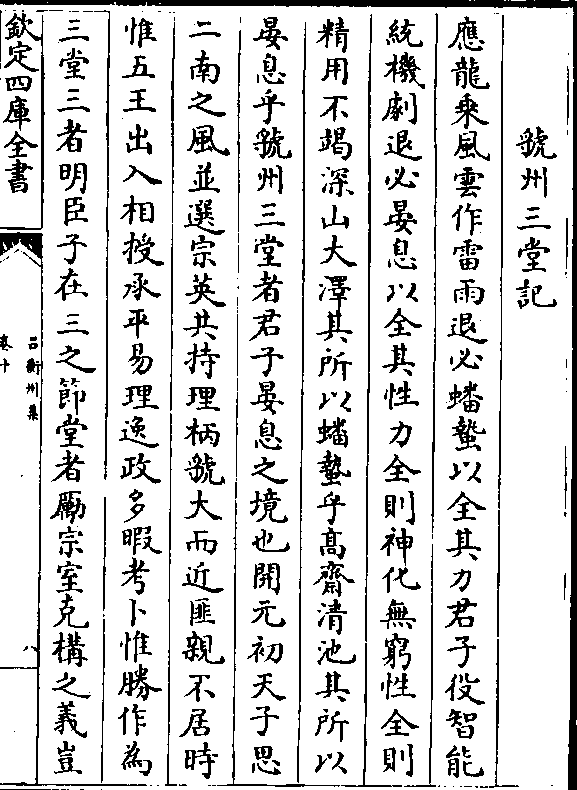 虢州三堂記
應龍乘風雲作雷雨退必蟠蟄以全其力君子役智能
統機劇退必晏息以全其性力全則神化無窮性全則
精用不竭深山大澤其所以蟠蟄乎髙齋清池其所以
晏息乎虢州三堂者君子晏息之境也開元初天子思
二南之風並選宗英共持理柄虢大而近匪親不居時
惟五王出入相授承平易理逸政多暇考卜惟勝作為
三堂三者明臣子在三之節堂者勵宗室克構之義豈
欽定四庫全書
吕衡州集
卷十
八